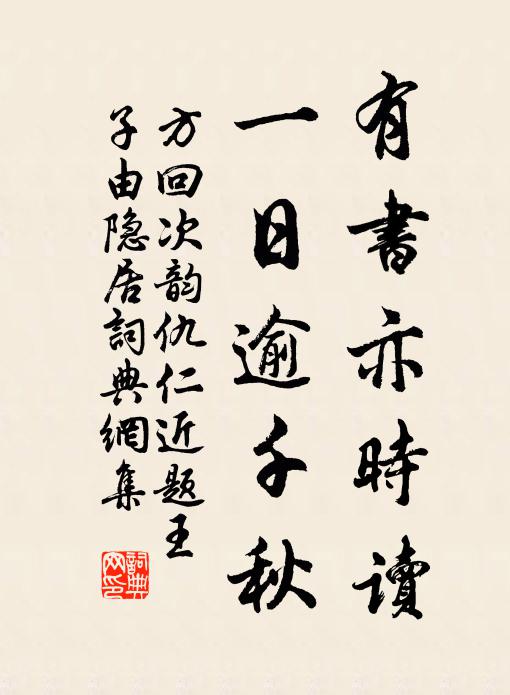 有書亦時讀
一日逾千秋
方回次韵仇仁近题王
子由隐居詞典網集
詞典
网印